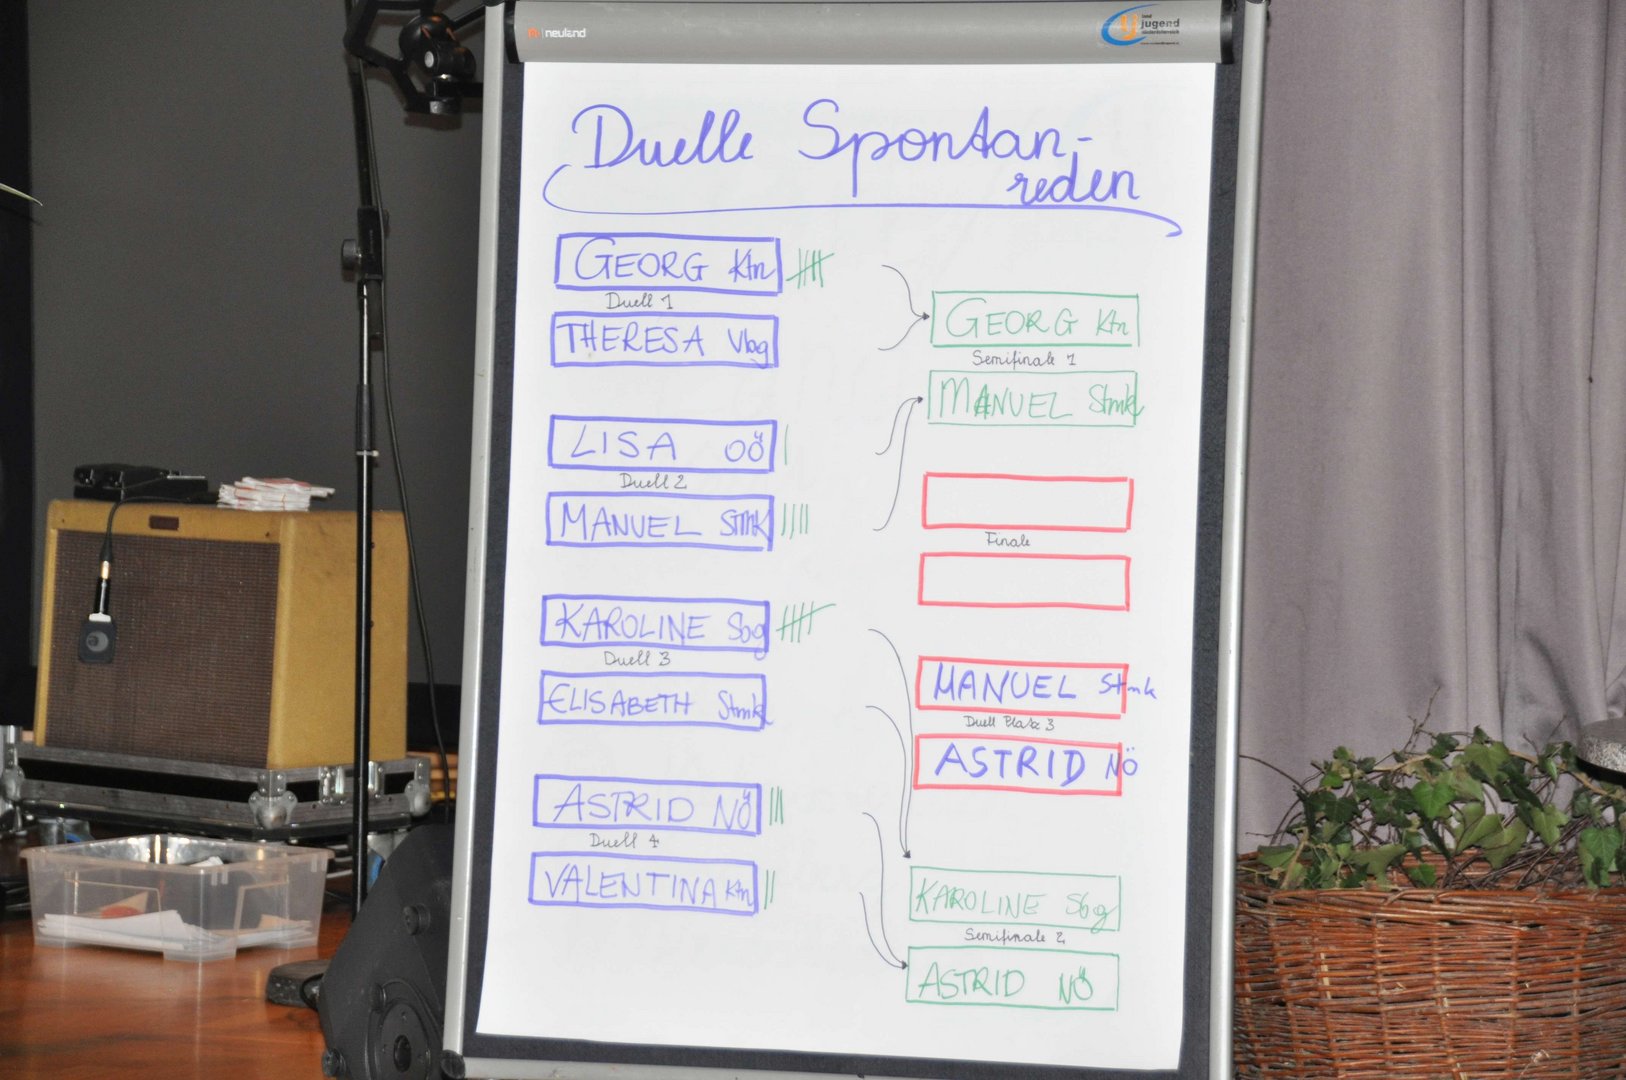 neuland
land
jugend
niederösterreich
Duelle Spontan-
reden
GEORG Ktn
Duell 1
THERESA Vbg
LISA OÖ
Duell 2
MANUEL STMK
KAROLINE Sbg
Duell 3
ELISABETH Stmk
ASTRID NÖ
Duell 4
VALENTINA Ktn
GEORG Ktn
Semifinale 1
MANUEL Stmk
Finale
MANUEL Stmk
Duell Platz 3
ASTRID NÖ
KAROLINE Sbg
Semifinale 2
ASTRID NÖ